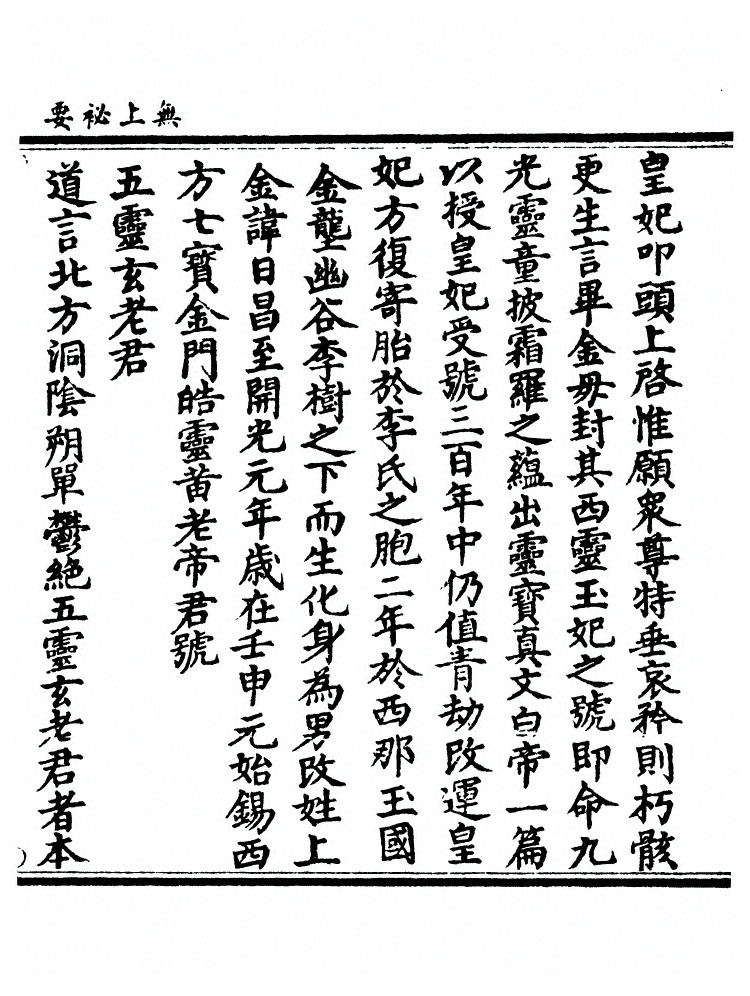 無上祕要
皇妃叩頭上啓惟願衆尊特垂哀矜則朽骸
更生言畢金母封其西靈玉妃之號即命九
光靈童披霜羅之蘊出靈寳真文白帝一篇
以授皇妃受號三百年中仍值青劫改運皇
妃方復寄胎於李氏之胞二年於西那玉國
金壟幽谷李樹之下而生化身為男改姓上
金諱日昌至開光元年歲在壬申元始錫西
方七寳金門皓靈黄老帝君號
五靈玄老君
道言北方洞陰朔單鬱絶五靈玄老君者本